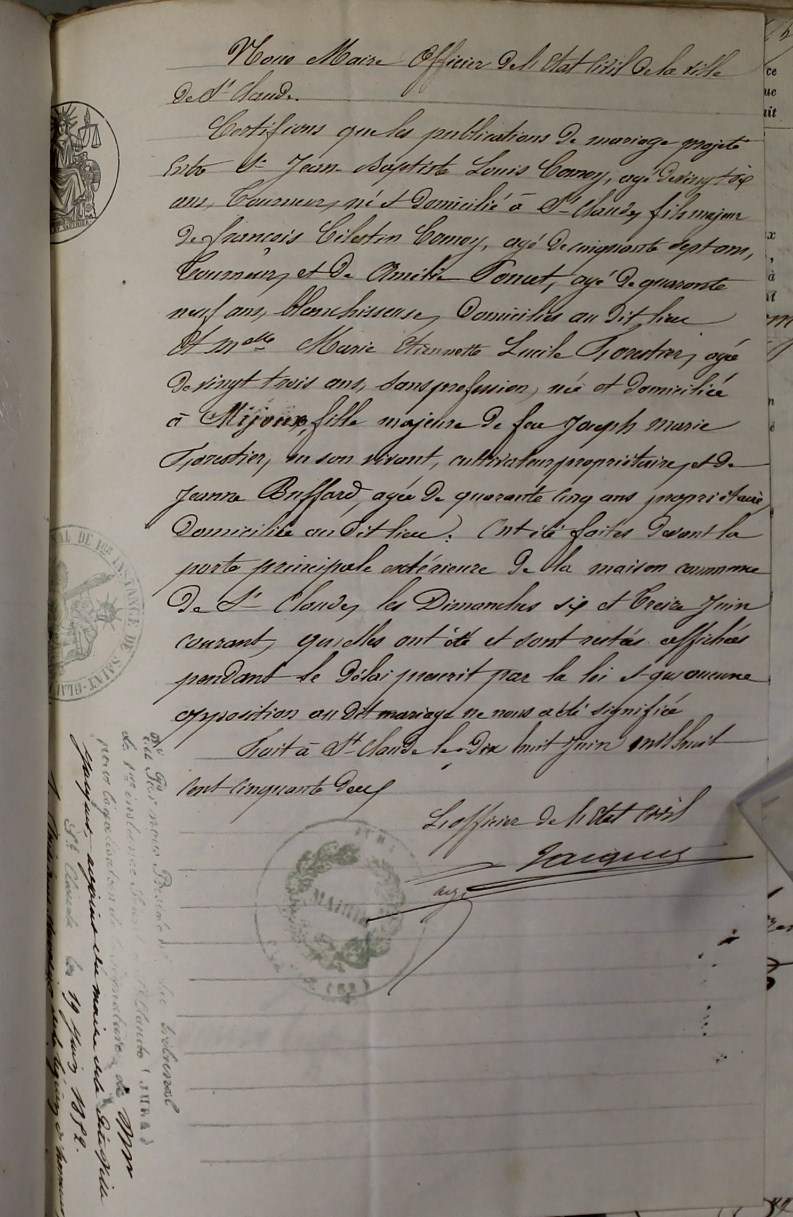 Nous Maire Officier de l'Etat Civil de la ville
de St Claude.
Certifions que les publications de mariage projeté
Entre Sr Jean Baptiste Louis Comoy, agé de vingt six
ans, Tourneur, né et domicilié à St Claude, fils majeur
de françois Célestin Comoy, agé de cinquante sept ans,
Tourneur, et de Amélie Poncet, agé de quarante
neuf ans, blanchisseuse, domiciliés au dit lieu
Et Melle Marie Etiennette Lucile Forestier, agée
de vingt trois ans, sans profession, née et domiciliée
à Mijoux, fille majeure de feu Joseph Marie
Forestier, en son vivant, cultivateur propriétaire, et de
Jeanne Buffard, agée de quarante cinq ans propriétaire,
domiciliée au dit lieu. Ont été faites devant la
porte principale extérieure de la maison commune
de St Claude, les Dimanches six et treize Juin
courant, qu'elles ont été et sont restées affichées
pendant le délai prescrit par la loi et qu'aucune
opposition au dit mariage ne nous a été signifiée
Fait à St Claude le dix huit Juin mil huit
cent cinquante deux
L'officier de l'Etat Civil
Jacquet
adj
MAIRIE
JURA
Vu Par nous Président du tribunal
de 1re instance St Claude (JURA)
pour légalisation de la signature de Mr
Jacquet, adjoint du maire de la dite ville
St Claude le 19 Juin 1852.
DE 1ère INSTANCE DE SAINT-CLAUDE